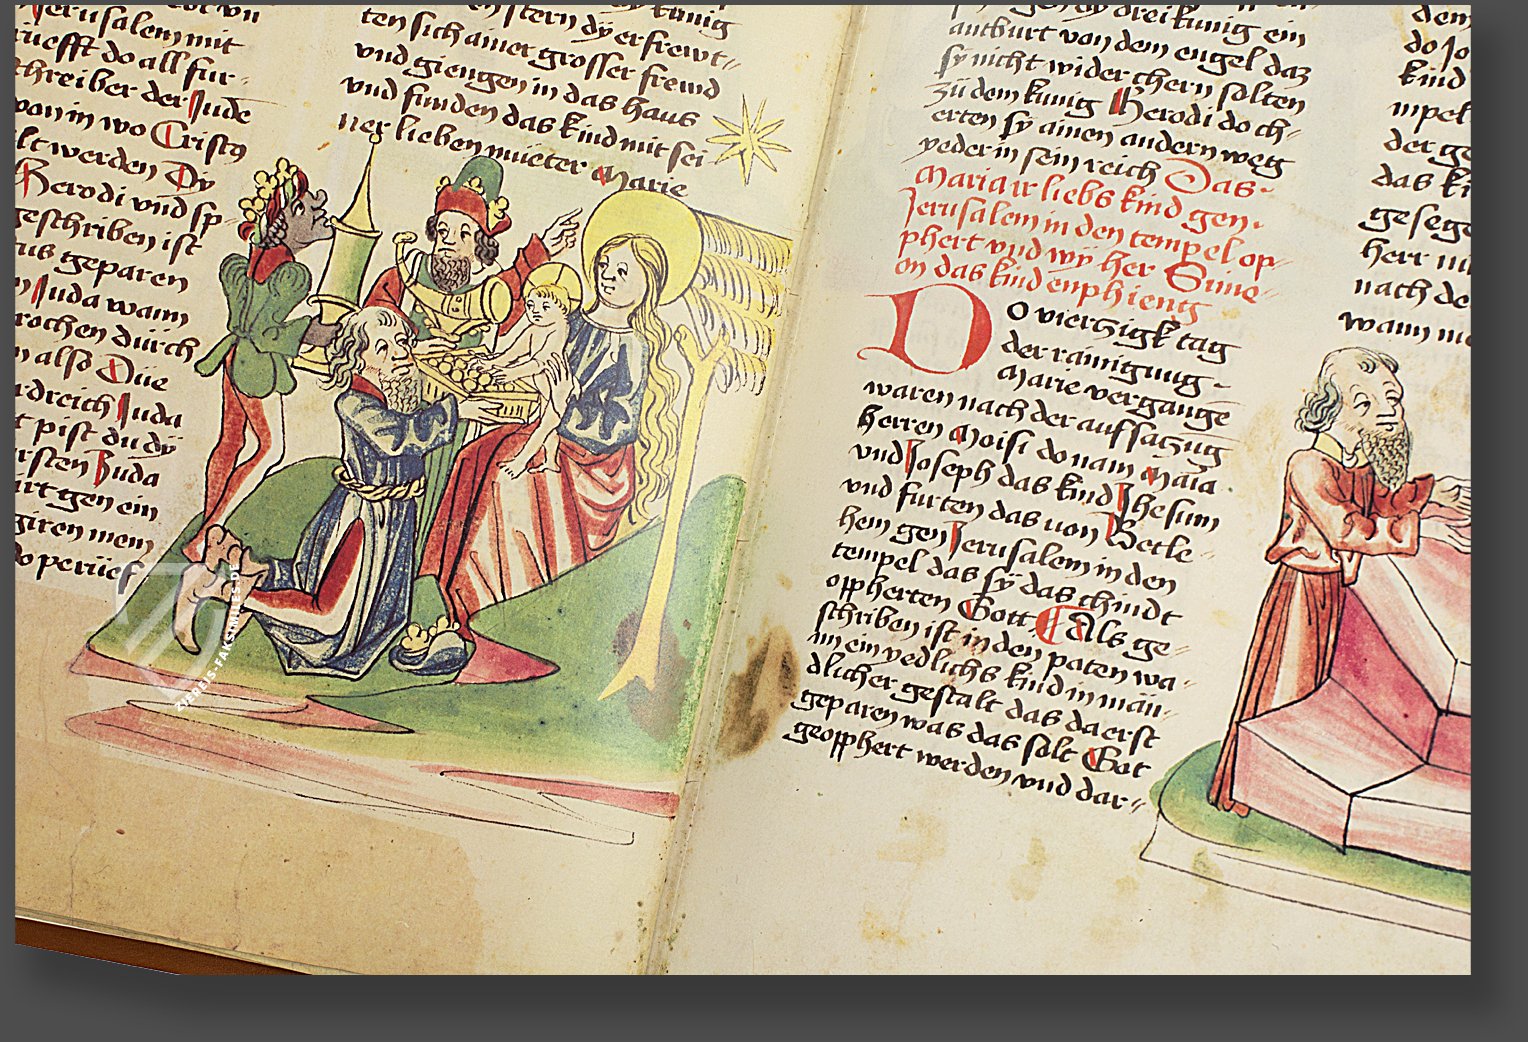 Jerusalem mit
rüefft do all für-
schreiber der Jude
von in wo Cristo
lt werden Dy
Herodi vnd sp-
geschriben ist
tus geparen
Juda wann
rochen dürch
n also Düe
rdreich Juda
t pist du dÿ
rsten Juda
irt gen ein
giren mein
do perüef
ten sich ainer grosser frewd
vnd giengen in das haus
vnd funden das kind mit sei
ner lieben müeter Marie
antburt von dem engel daz
sÿ nicht wider chern solten
zü dem kunig Herodi do ch-
erten sÿ ainen andern weg
yeder in sein reich Das
Maria ir liebs kind gen
Jerusalem in den tempel op-
phert vnd wÿ her Sime-
on das kind enphieng
Do vierczigk tag
der rainigung
Marie vergange
waren nach der aufsaczug
herren Moisi do nam Maia
vnd Joseph das kind Jhesum
vnd furten das von Betle-
hem gen Jerusalem in den
tempel das sÿ das chindt
oppherten Gott Als ge-
schriben ist in den paten wa-
im ein yedlichs kind in män-
dlicher gestalt das da erst
geparen was das solt Got
geopphert werden vnd dar-
dem
do Jo
kind
mpel
der ge
das ki
gesege
herr
nach de
wann
ZIEREIS-FAKSIMILES.DE